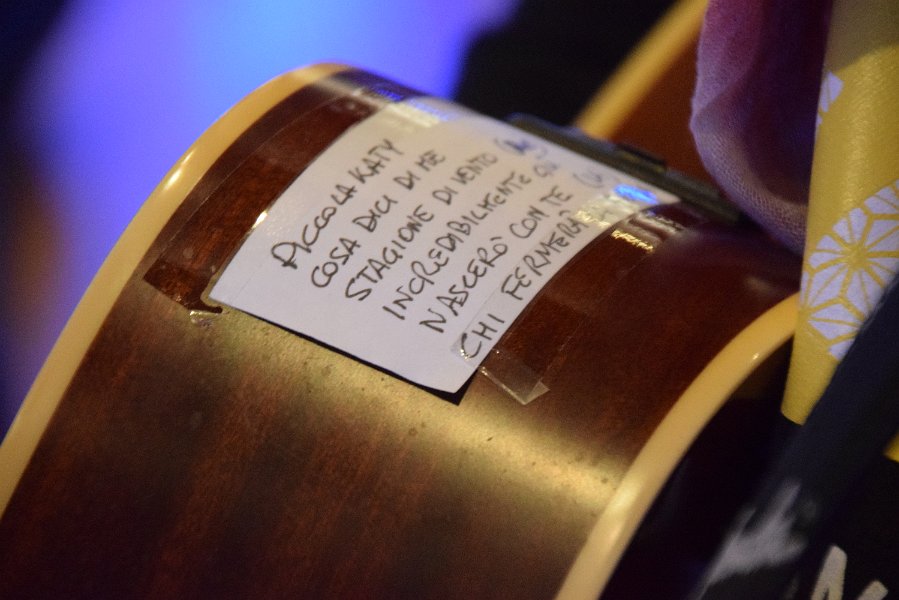 PICCOLA KATY
COSA DICI DI ME
STAGIONE DI VENTO
INCREDIBILMENTE GIÙ
NASCERÒ CON TE
CHI FERMERÀ